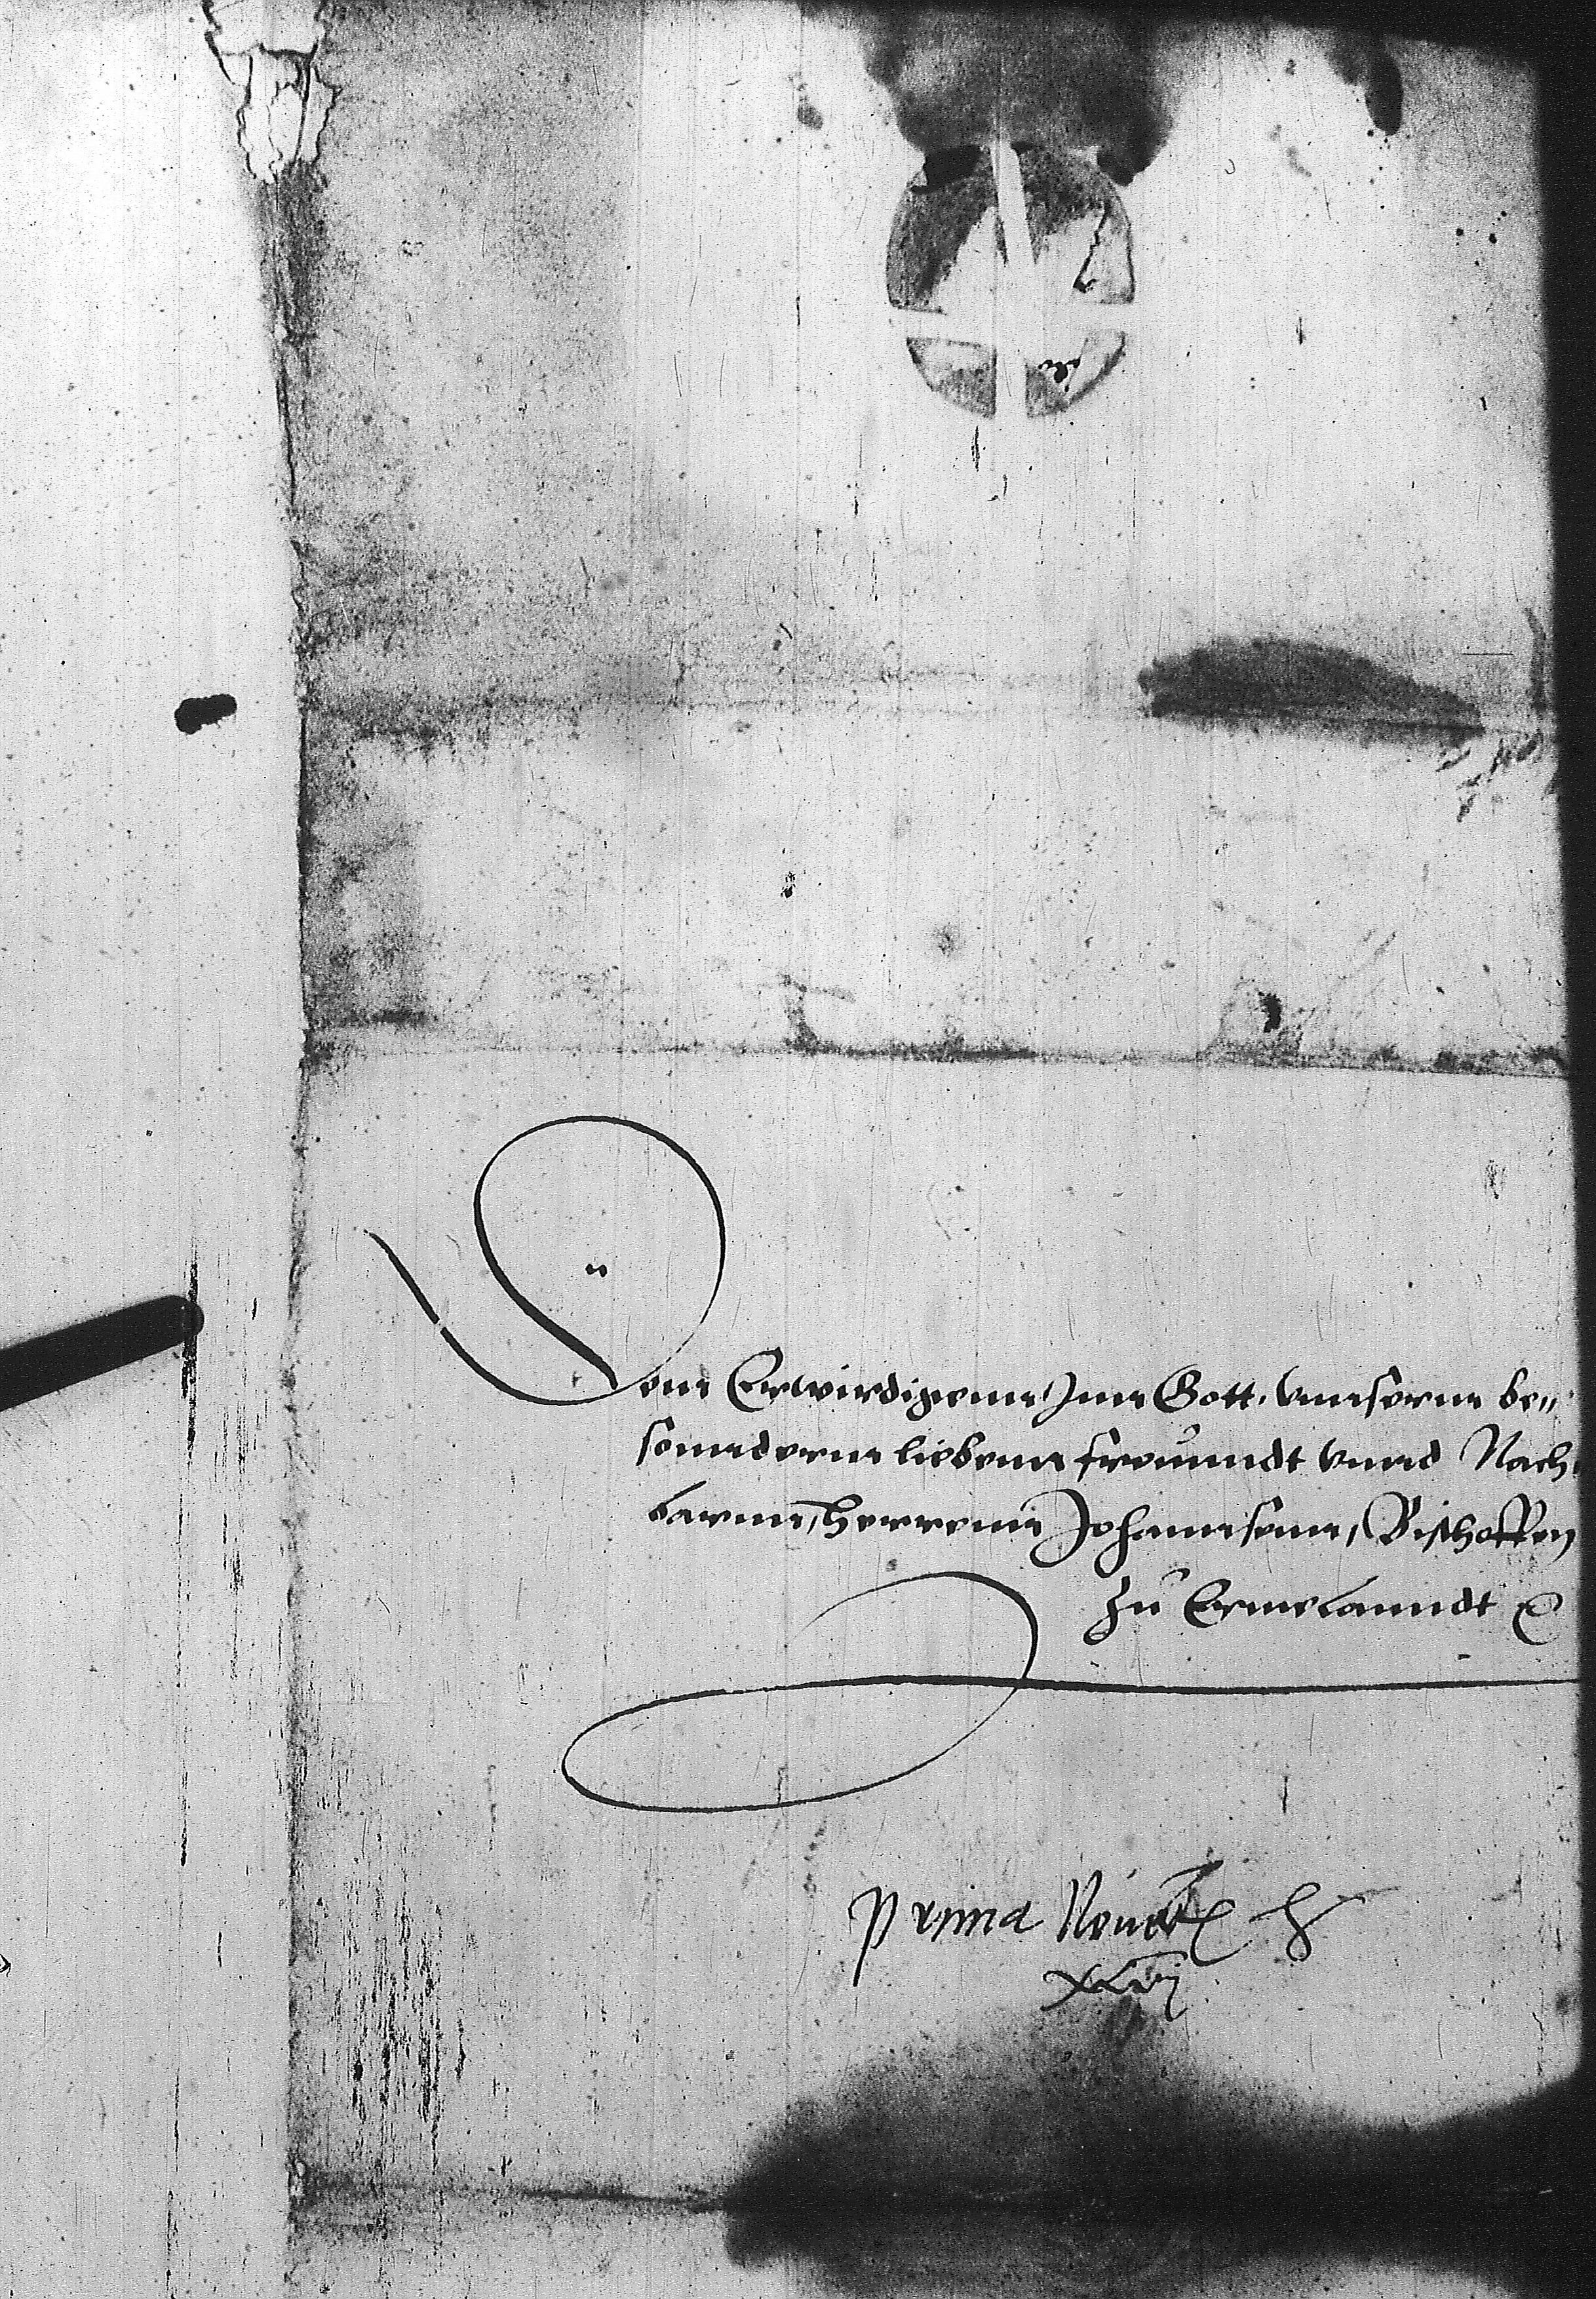 Dem Erwirdigenn Inn Gott, vnnserm be„
sonndernn liebenn freuundt vnnd Nach„
barnn, herrenn Johannsenn, Bischoffen
zu Ermelanndt
Prima Nouembris
xlvj